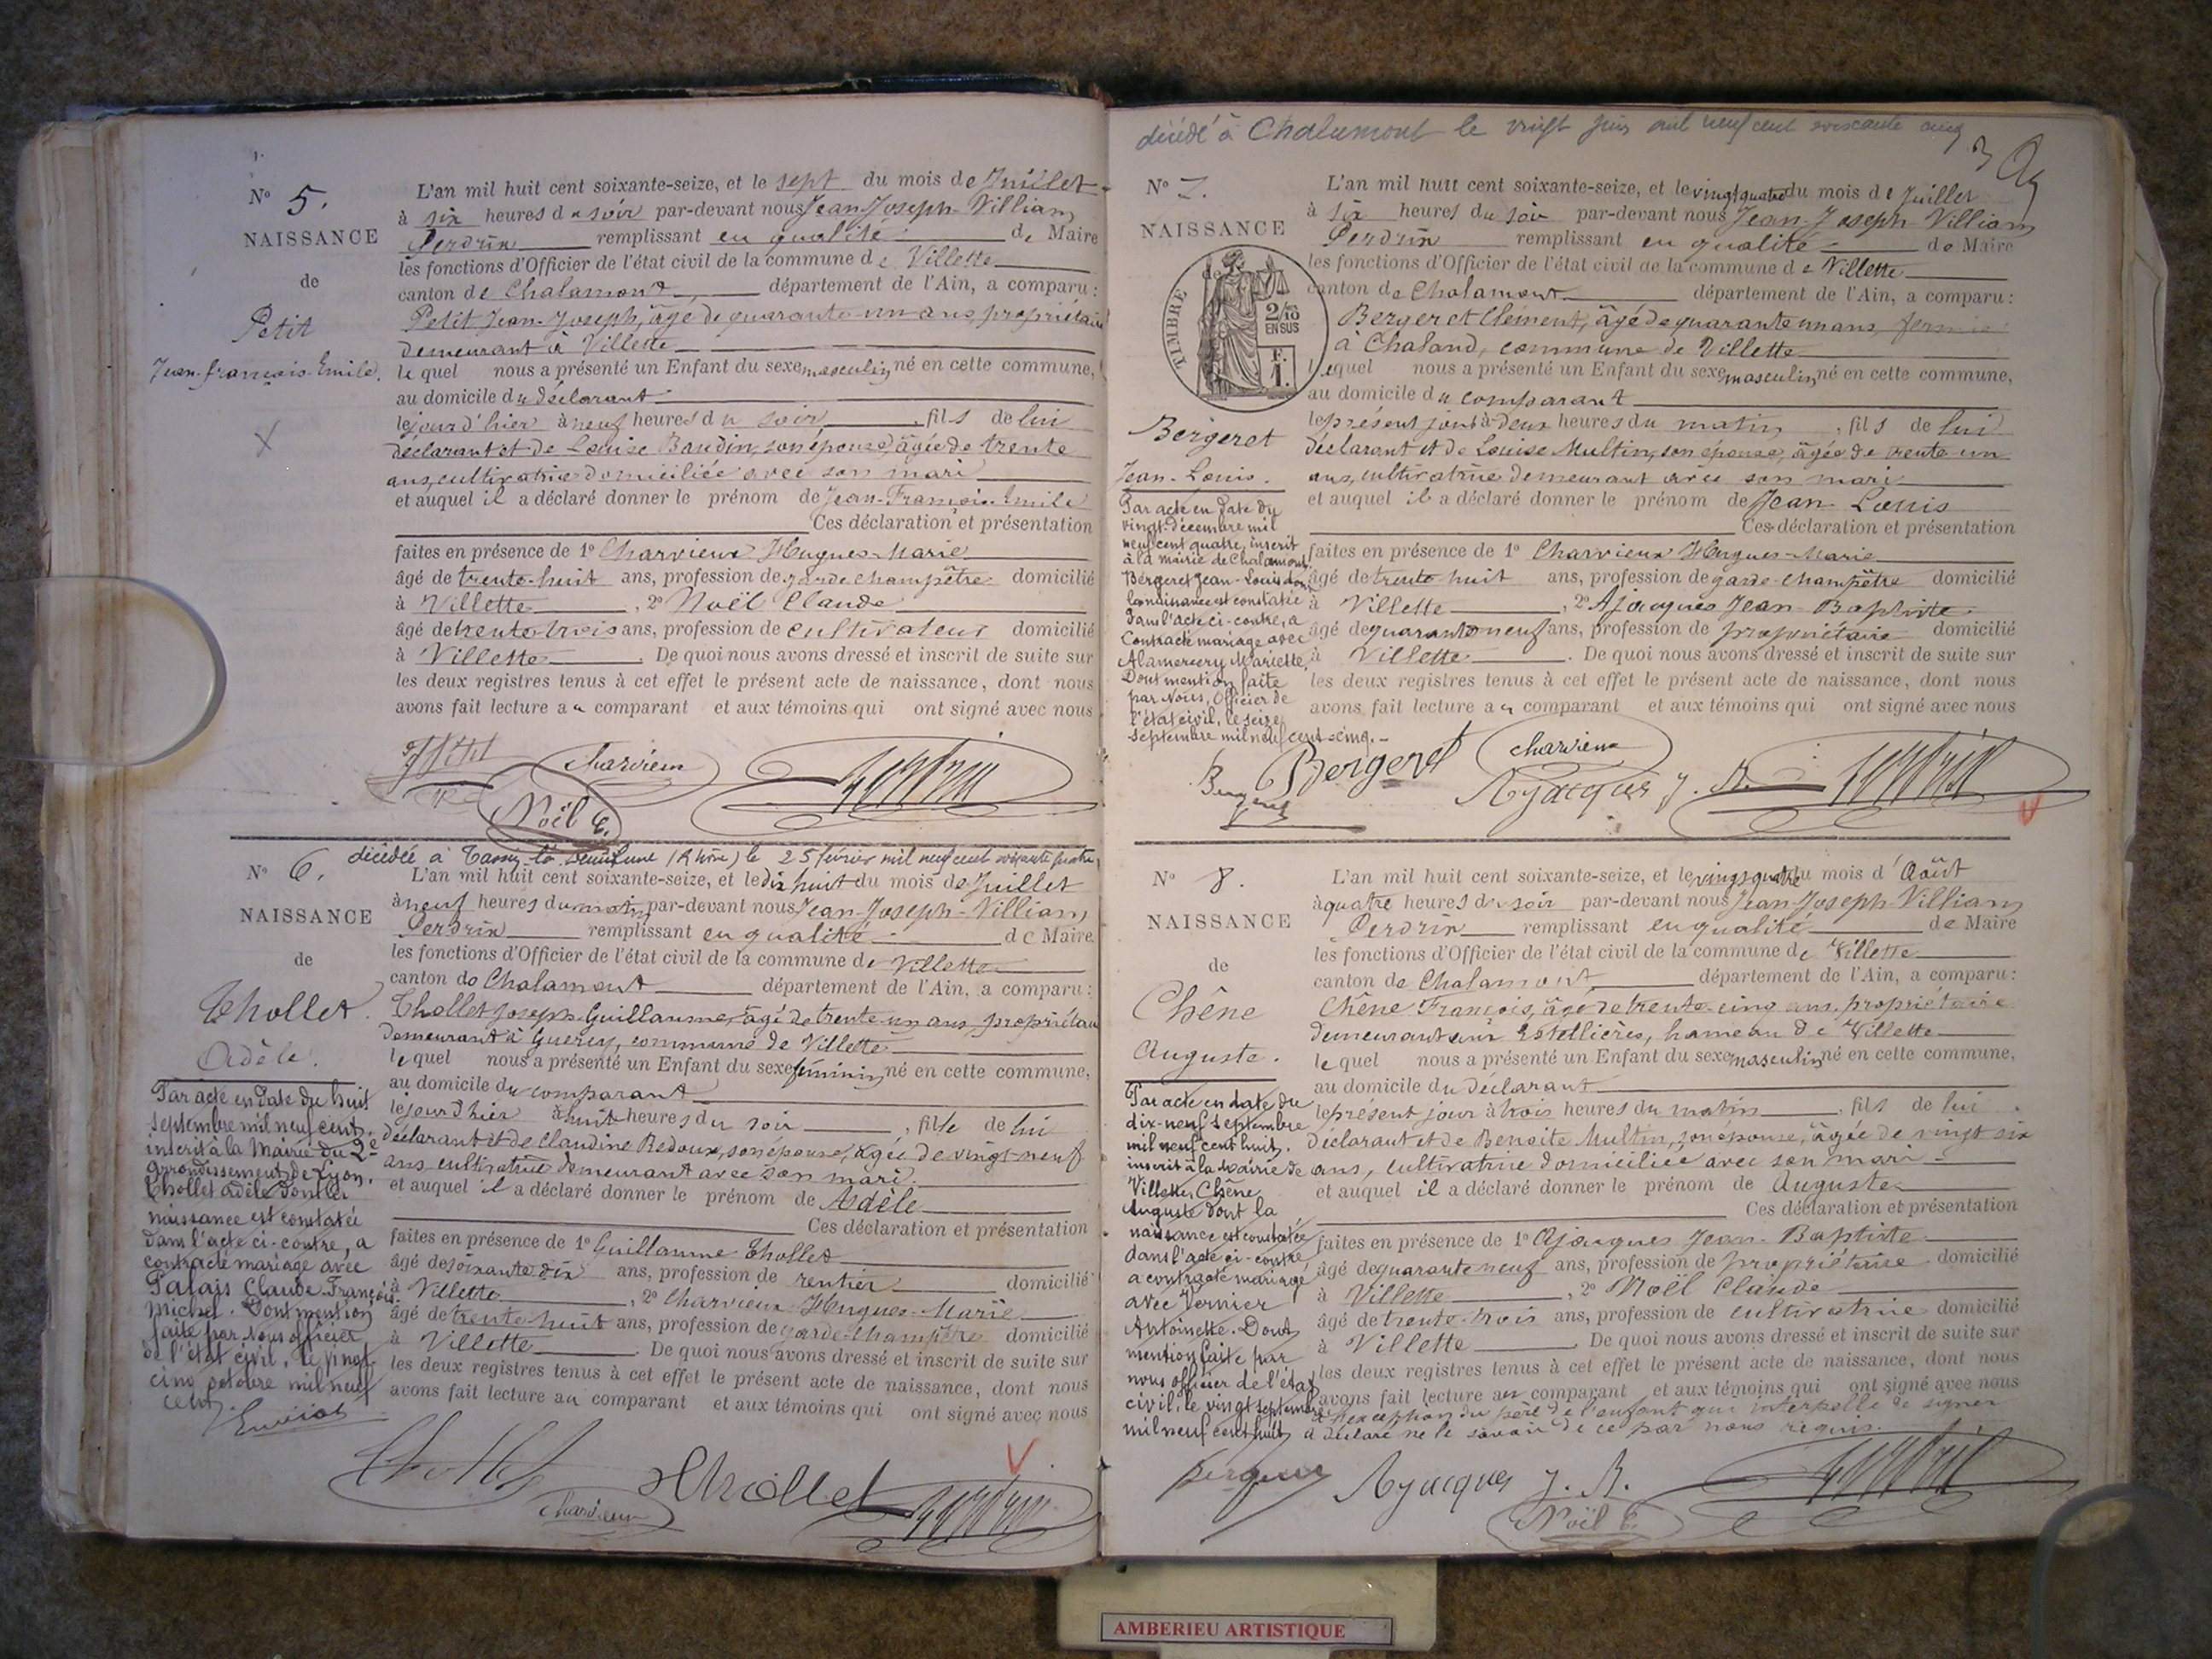 N° 5.
NAISSANCE
de
Petit
Jean-françois-Emile.
L'an mil huit cent soixante-seize, et le sept du mois de Juillet
à six heures du soir par-devant nous Jean-Joseph-Villiam
Perdrix remplissant en qualité de Maire
les fonctions d'Officier de l'état civil de la commune de Villette
canton de Chalamont département de l'Ain, a comparu :
Petit Jean-Joseph, âgé de quarante-un ans, propriétaire
demeurant à Villette
lequel nous a présenté un Enfant du sexe masculin né en cette commune,
au domicile du déclarant
le jour d'hier à neuf heures du soir, fils de lui
déclarant et de Louise Baudin, son épouse, âgée de trente
ans, cultivatrice domiciliée avec son mari
et auquel il a déclaré donner le prénom de Jean-François-Emile
Ces déclaration et présentation
faites en présence de 1° Charvieux Hugues-Marie
âgé de trente-huit ans, profession de garde champêtre domicilié
à Villette, 2° Noël Claude
âgé de trente-trois ans, profession de cultivateur domicilié
à Villette. De quoi nous avons dressé et inscrit de suite sur
les deux registres tenus à cet effet le présent acte de naissance, dont nous
avons fait lecture au comparant et aux témoins qui ont signé avec nous
Charvieux
Noël C.
N° 6.
décédée à Tassin-la-Demi-Lune (Rhône) le 25 février mil neuf cent soixante quatre
NAISSANCE
de
Thollet
Adèle.
Par acte en date du huit
septembre mil neuf cent,
inscrit à la Mairie du 2e
arrondissement de Lyon,
Thollet Adèle dont la
naissance est constatée
dans l'acte ci-contre, a
contracté mariage avec
Palais Claude-François
Michel. Dont mention
faite par Nous officier
de l'état civil, le vingt
cinq octobre mil neuf
cent.
L'an mil huit cent soixante-seize, et le dix huit du mois de Juillet
à neuf heures du matin par-devant nous Jean-Joseph-Villiam
Perdrix remplissant en qualité de Maire
les fonctions d'Officier de l'état civil de la commune de Villette
canton de Chalamont département de l'Ain, a comparu :
Thollet Joseph-Guillaume, âgé de trente-un ans, propriétaire
demeurant à Guerey, commune de Villette
lequel nous a présenté un Enfant du sexe féminin né en cette commune,
au domicile du comparant
le jour d'hier à huit heures du soir, fille de lui
déclarant et de Claudine Bedoux, son épouse, âgée de vingt-neuf
ans, cultivatrice demeurant avec son mari.
et auquel il a déclaré donner le prénom de Adèle
Ces déclaration et présentation
faites en présence de 1° Guillaume Thollet
âgé de soixante dix ans, profession de rentier domicilié
à Villette, 2° Charvieux Hugues-Marie
âgé de trente-huit ans, profession de garde-champêtre domicilié
à Villette. De quoi nous avons dressé et inscrit de suite sur
les deux registres tenus à cet effet le présent acte de naissance, dont nous
avons fait lecture au comparant et aux témoins qui ont signé avec nous
Thollet
Thollet
Charvieux
décédé à Chalamont le vingt juin mil neuf cent soixante cinq
N° 7.
NAISSANCE
de
TIMBRE
2/10
EN SUS
F.
1.
Bergeret
Jean-Louis.
Par acte en date du
vingt-décembre mil
neuf cent quatre, inscrit
à la mairie de Chalamont,
Bergeret Jean-Louis dont
la naissance est constatée
dans l'acte ci-contre, a
contracté mariage avec
Alamercery Mariette,
Dont mention faite
par Nous, Officier de
l'état civil, le seize
septembre mil neuf cent-cinq.-
L'an mil huit cent soixante-seize, et le vingt quatre du mois de Juillet
à six heures du soir par-devant nous Jean-Joseph-Villiam
Perdrix remplissant en qualité de Maire
les fonctions d'Officier de l'état civil de la commune de Villette
canton de Chalamont département de l'Ain, a comparu :
Bergeret Clément, âgé de quarante un ans, fermier
à Chaland, commune de Villette
lequel nous a présenté un Enfant du sexe masculin né en cette commune,
au domicile du comparant
le présent jour à deux heures du matin, fils de lui
déclarant et de Louise Multin, son épouse, âgée de trente-un
ans, cultivatrice demeurant avec son mari
et auquel il a déclaré donner le prénom de Jean Louis
Ces déclaration et présentation
faites en présence de 1° Charvieux Hugues-Marie
âgé de trente huit ans, profession de garde-champêtre domicilié
à Villette, 2° Ajacques Jean-Baptiste
âgé de quarante neuf ans, profession de propriétaire domicilié
à Villette. De quoi nous avons dressé et inscrit de suite sur
les deux registres tenus à cet effet le présent acte de naissance, dont nous
avons fait lecture au comparant et aux témoins qui ont signé avec nous
Bergeret
Charvieux
Ajacques J. B.
N° 8.
NAISSANCE
de
Chêne
Auguste.
Par acte en date du
dix-neuf septembre
mil neuf cent huit,
inscrit à la Mairie de
Villette, Chêne
Auguste dont la
naissance est constatée
dans l'acte ci-contre
a contracté mariage
avec Vernier
Antoinette. Dont
mention faite par
nous officier de l'état
civil, le vingt septembre
mil neuf cent huit
L'an mil huit cent soixante-seize, et le vingt quatre du mois d'Août
à quatre heures du soir par-devant nous Jean-Joseph-Villiam
Perdrix remplissant en qualité de Maire
les fonctions d'Officier de l'état civil de la commune de Villette
canton de Chalamont département de l'Ain, a comparu :
Chêne François, âgé de trente-cinq ans, propriétaire
demeurant aux Estellières, hameau de Villette
lequel nous a présenté un Enfant du sexe masculin né en cette commune,
au domicile du déclarant
le présent jour à trois heures du matin, fils de lui
déclarant et de Benoite Multin, son épouse, âgée de vingt six
ans, cultivatrice domiciliée avec son mari
et auquel il a déclaré donner le prénom de Auguste
Ces déclaration et présentation
faites en présence de 1° Ajacques Jean-Baptiste
âgé de quarante neuf ans, profession de propriétaire domicilié
à Villette, 2° Noël Claude
âgé de trente-trois ans, profession de cultivatrice domicilié
à Villette. De quoi nous avons dressé et inscrit de suite sur
les deux registres tenus à cet effet le présent acte de naissance, dont nous
avons fait lecture au comparant et aux témoins qui ont signé avec nous
à l'exception du père de l'enfant qui interpellé de signer
a déclaré ne le savoir de ce par nous requis.
Ajacques J. B.
Noël C.
AMBERIEU ARTISTIQUE